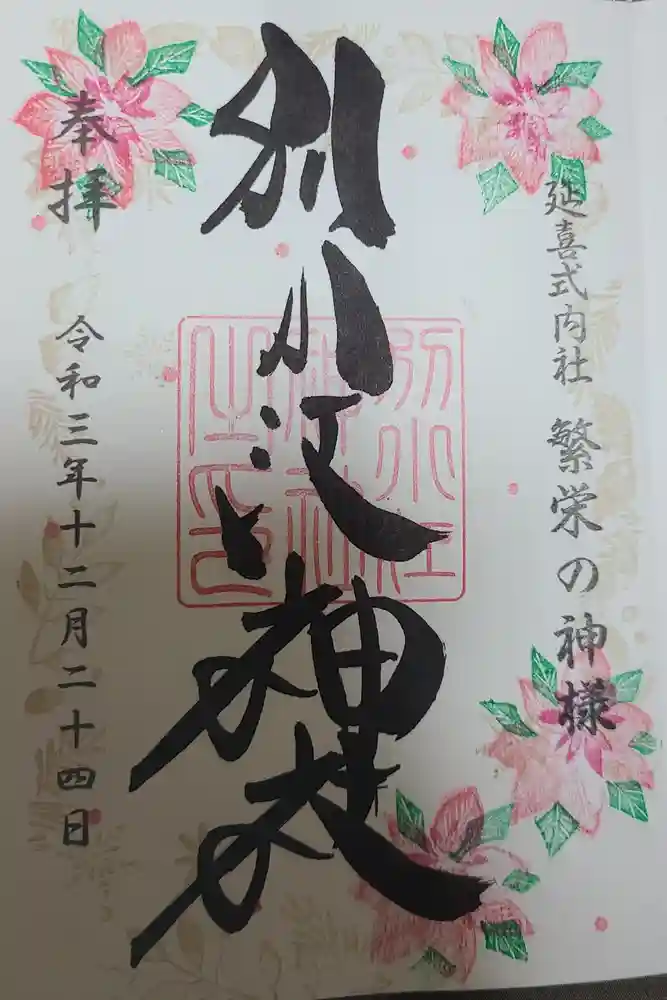 延喜式内社 繁栄の神様
別小江神社
別小江
神社
之印
奉拝
令和三年十二月二十四日